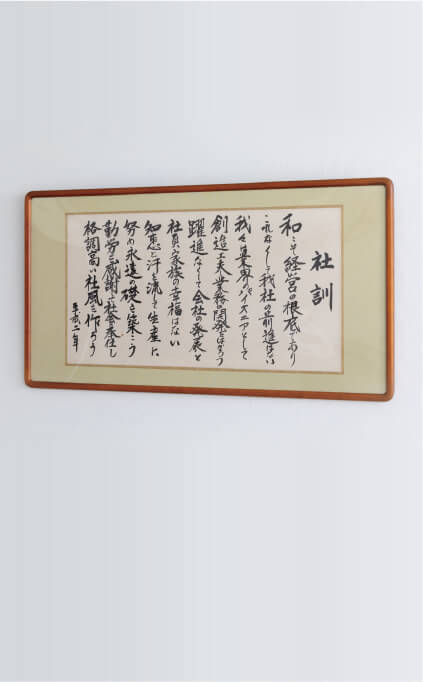 社訓
和こそ経営の根底であり
これなくして我社の前進はない
我々は業界のパイオニアとして
創造工夫業務の開発をはかろう
躍進なくして会社の発展と
社員家族の幸福はない
知恵と汗を流して生産に
努め永遠の礎を築こう
勤労に感謝し社会に奉仕し
格調高い社風を作ろう
平成二年